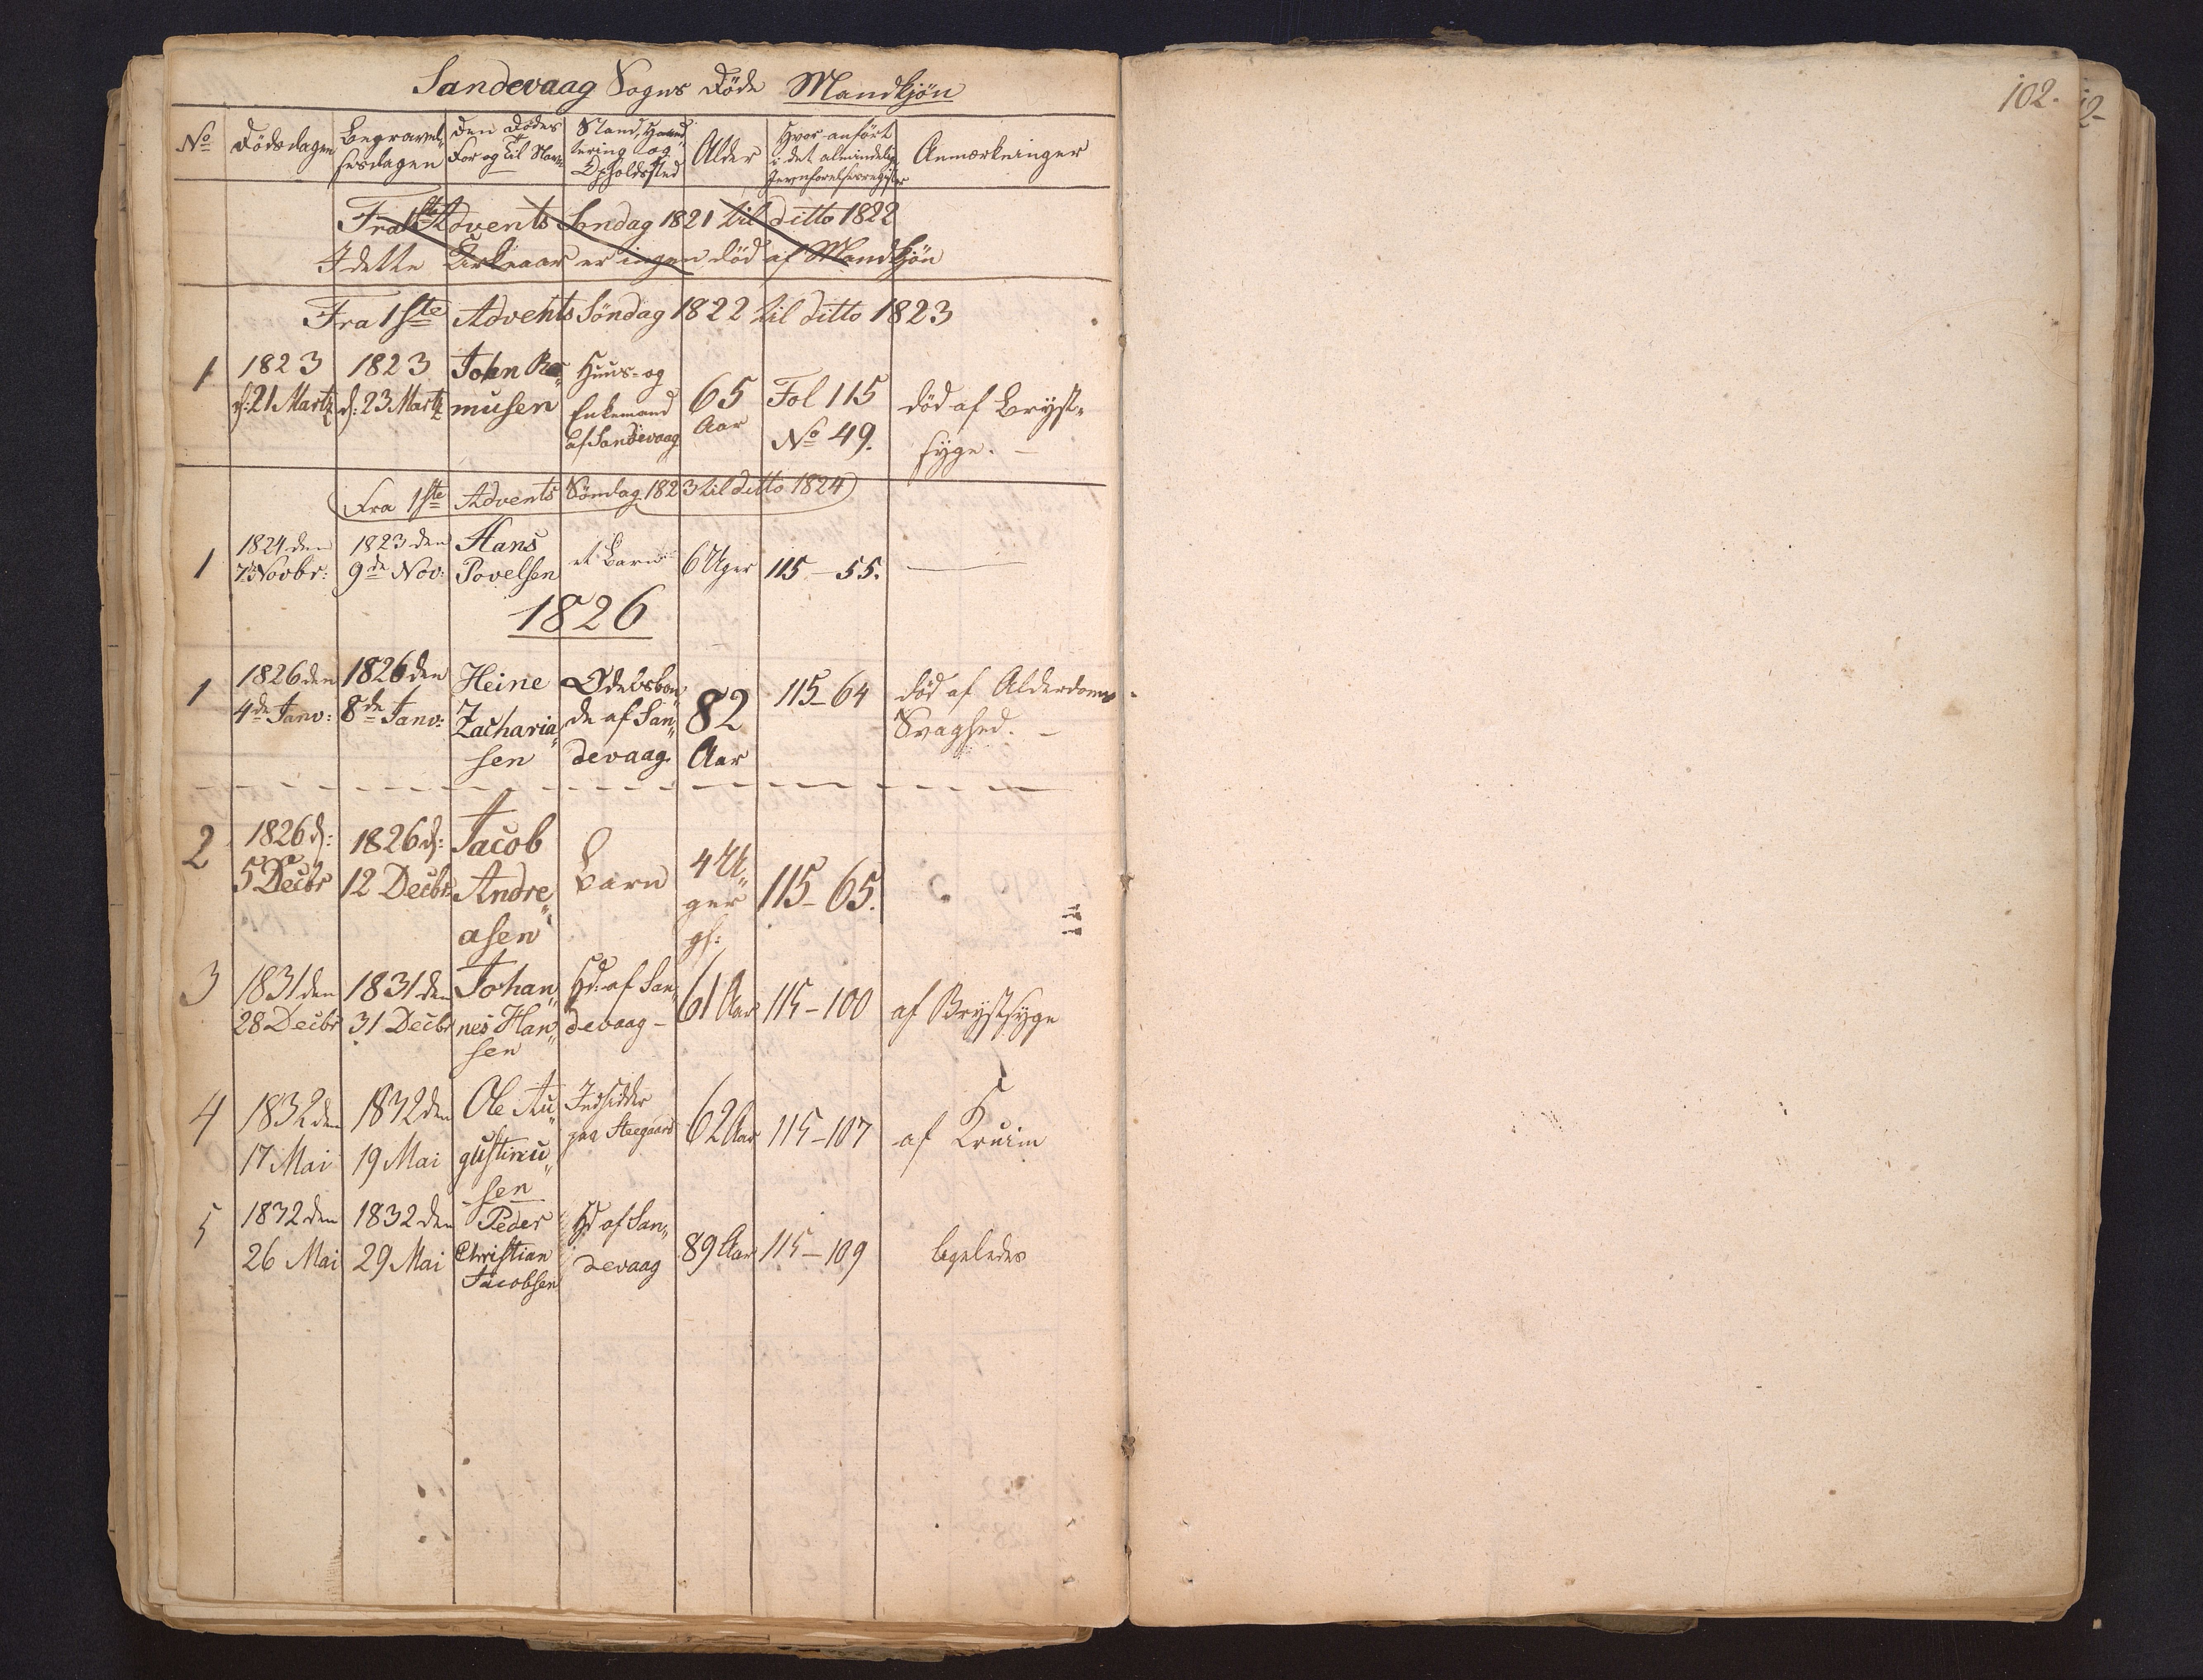 Sandevaag Sogns Døde Mandkjøn
102.
No
Dødsdagen
Begravel-
sesdagen
Den Dødes
For og Til Navn
Stand, Haand-
tering og
Opholdssted
Alder
Hvor anført
i det almindelig
Jevnførelsesregister
Anmærkninger
Fra 1ste Advents Søndag 1821 til ditto 1822
I dette Kirkeaar er ingen død af Mandkjøn
Fra 1ste Advents Søndag 1822 til ditto 1823
1
1823
d: 21 Martz
1823
d: 23 Martz
John Ras-
musen
Huus- og
Enkemand
af Sandevaag
65
Aar
Fol 115
No 49.
død af Bryst-
syge. -
Fra 1ste Advents Søndag 1823 til ditto 1824
1
1824 den
7de Novbr:
1823 den
9de Nov:
Hans
Povelsen
et Barn
6 Uger
115 - 55.
1826
1
1826 den
4de Janv:
1826 den
8de Janv:
Heine
Zacharia-
sen
Odelsbon-
de af San-
devaag.
82
Aar
115 - 64
død af Alderdoms-
Svaghed. -
2
1826 d:
5 Decbr
1826 d:
12 Decbr
Jacob
Andre-
asen
Barn
4 U-
ger
gl:
115 - 65.
3
1831 den
28 Decbr
1831 den
31 Decbr
Johan-
nes Han-
sen
Hd: af San-
devaag -
61 Aar
115 - 100
af Brystsyge
4
1832 den
17 Mai
1832 den
19 Mai
Ole Au-
gustinu-
sen
Indsidder
paa Steegaard
62 Aar
115 - 107
af Kruim
5
1832 den
26 Mai
1832 den
29 Mai
Peder
Christian
Jacobsen
Hd af San-
devaag
89 Aar
115 - 109
ligeledes